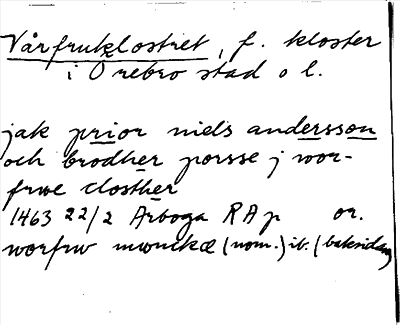 Vårfruklostret, f. kloster
i Örebro stad o l.
jak prior niels andersson
och brodher porsse j vor-
frwe closther
1463 22/2 Arboga RAp or.
worfrw mwnckæ (nom.) ib. (baksidan)